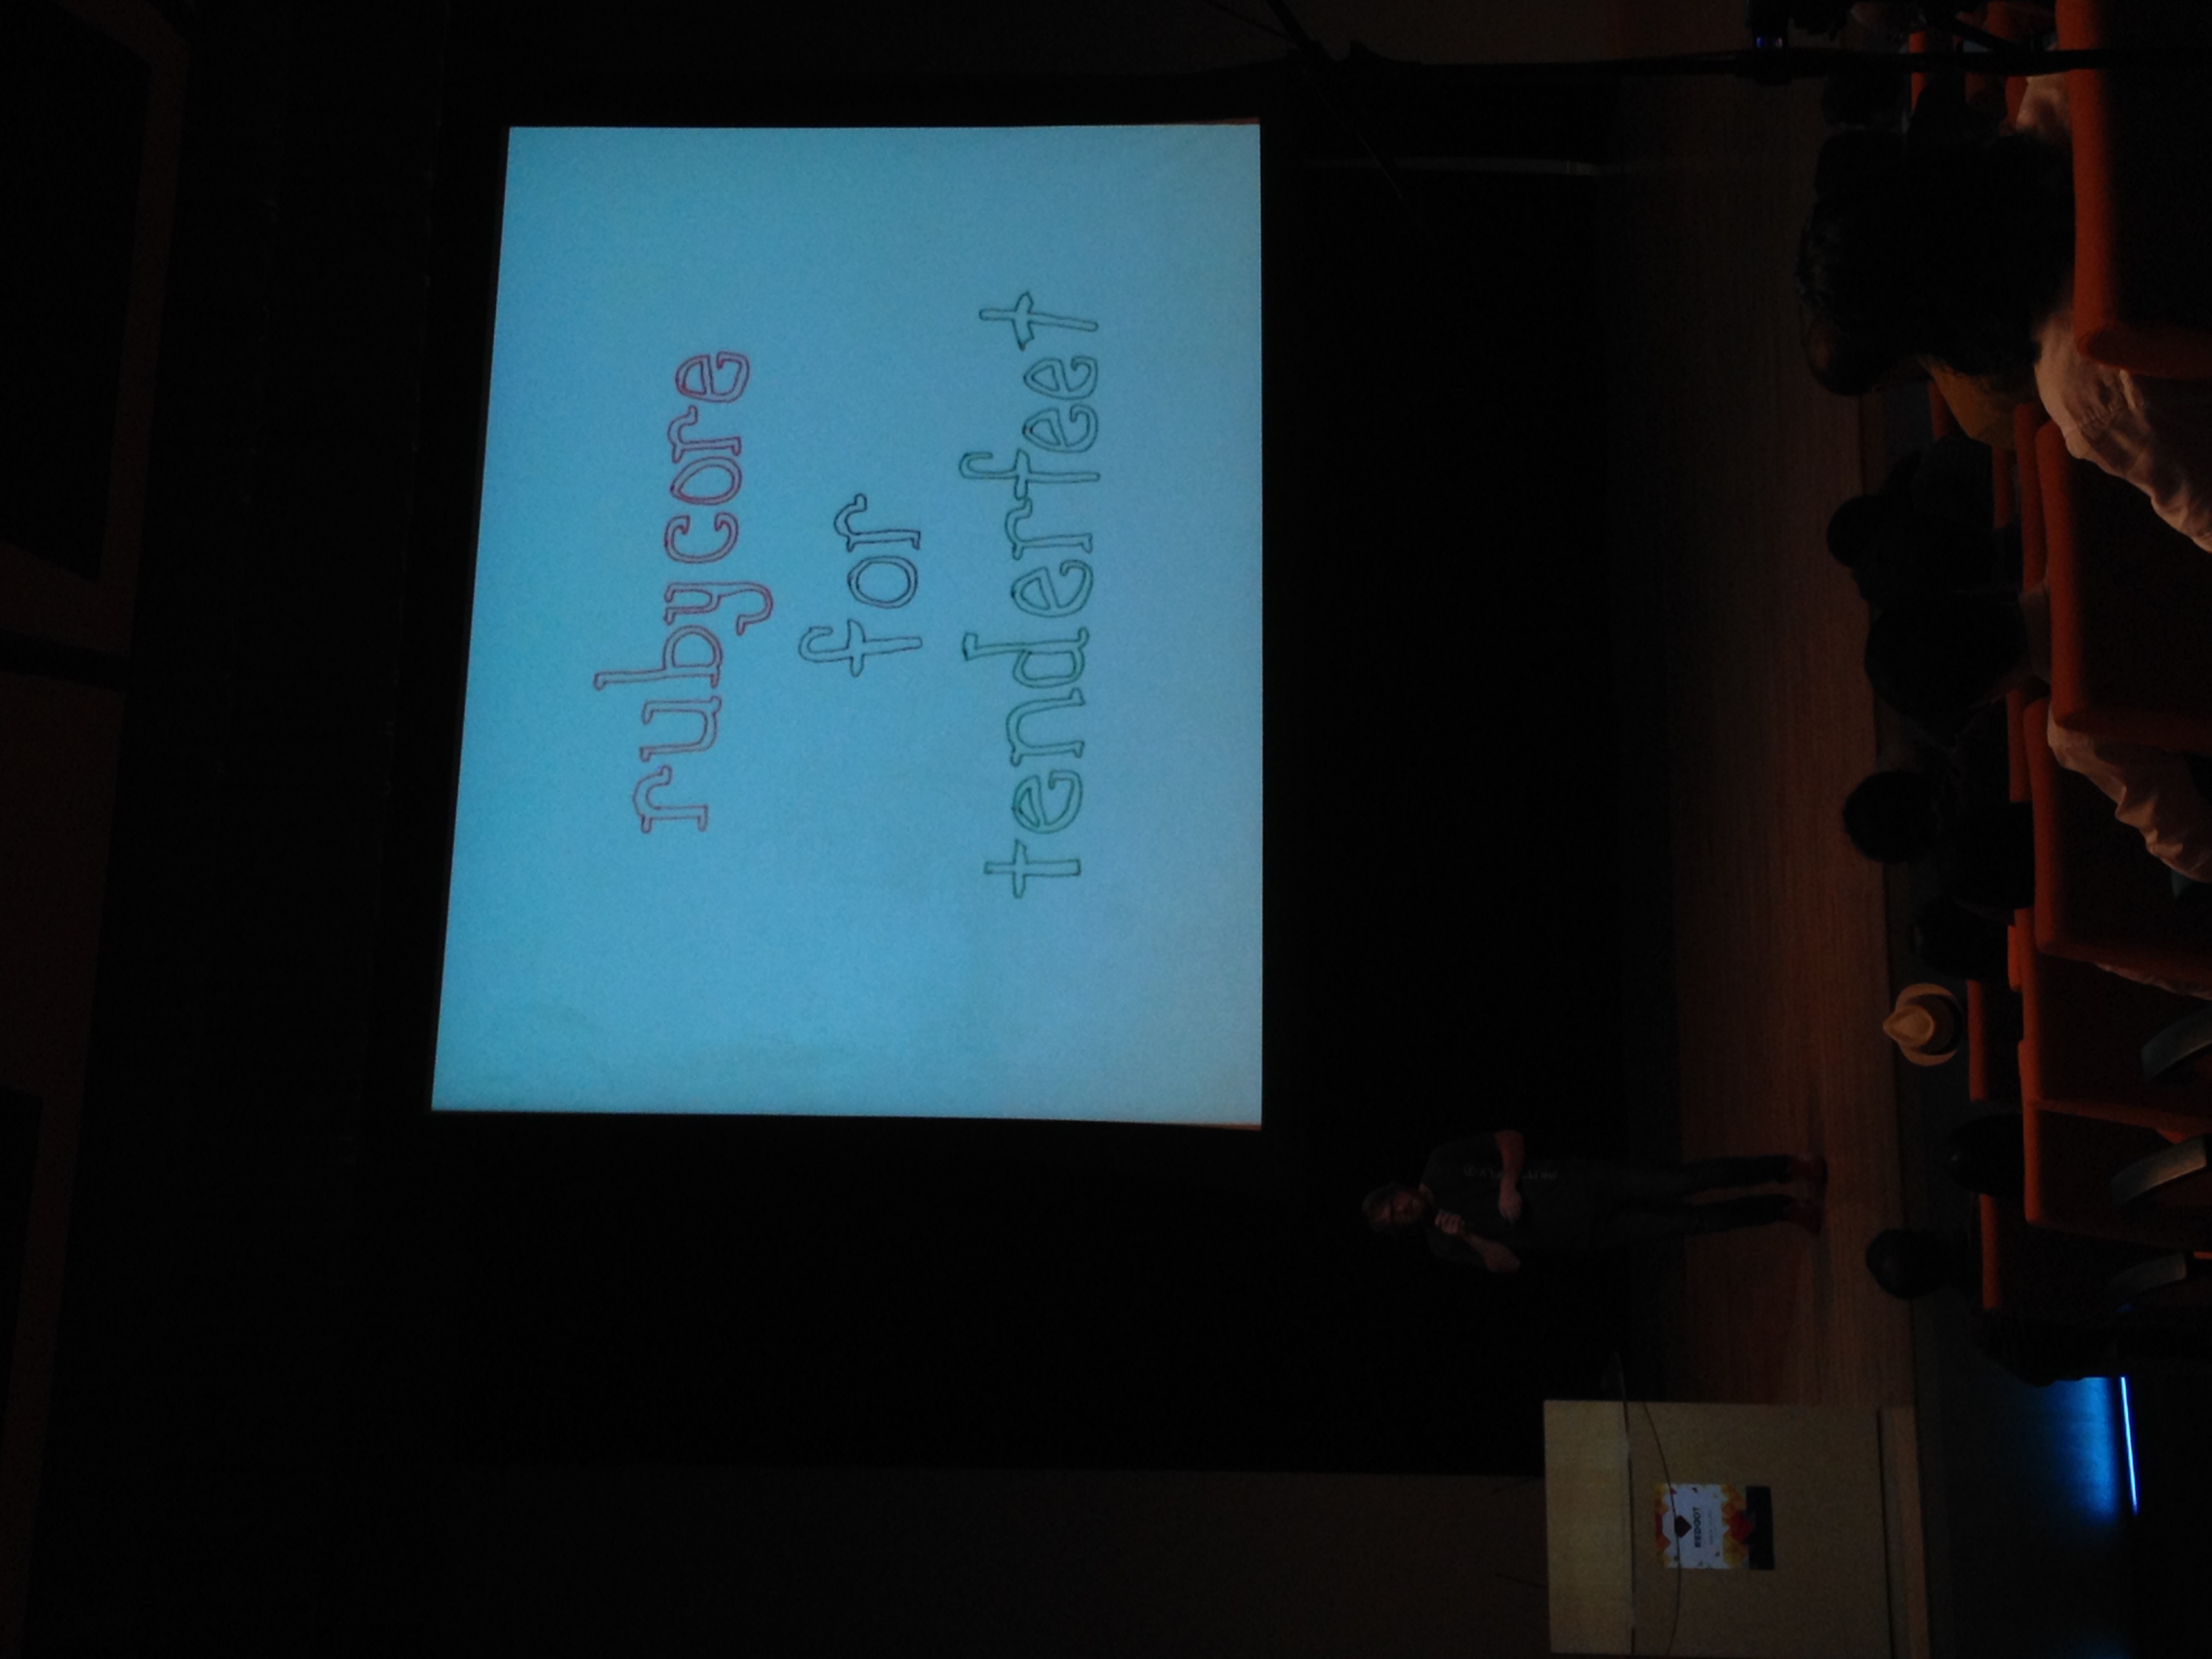 rubycore
for
tenderfeet
REDDOT